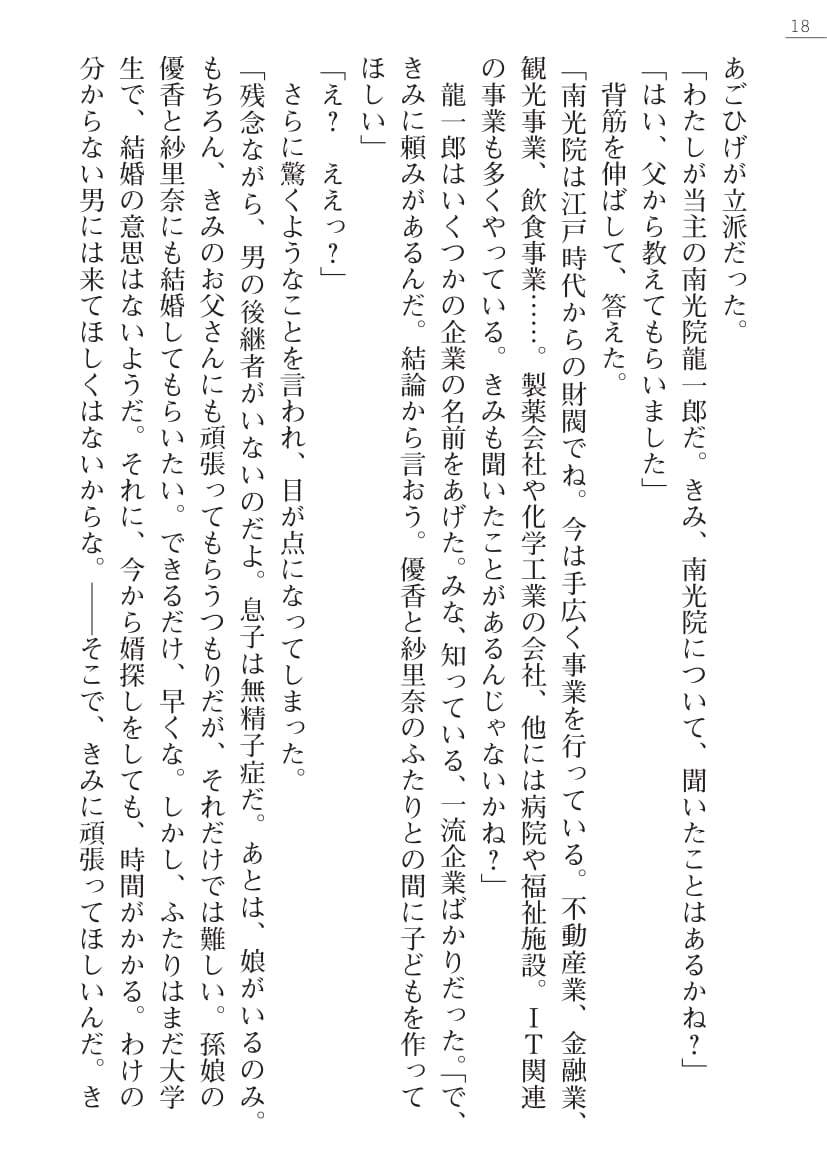 18
あごひげが立派だった。
「わたしが当主の南光院龍一郎だ。きみ、南光院について、聞いたことはあるかね？」
「はい、父から教えてもらいました」
背筋を伸ばして、答えた。
「南光院は江戸時代からの財閥でね。今は手広く事業を行っている。不動産業、金融業、
観光事業、飲食事業……。製薬会社や化学工業の会社、他には病院や福祉施設。ＩＴ関連
の事業も多くやっている。きみも聞いたことがあるんじゃないかね？」
龍一郎はいくつかの企業の名前をあげた。みな、知っている、一流企業ばかりだった。「で、
きみに頼みがあるんだ。結論から言おう。優香と紗里奈のふたりとの間に子どもを作って
ほしい」
「え？　ええっ？」
さらに驚くようなことを言われ、目が点になってしまった。
「残念ながら、男の後継者がいないのだよ。息子は無精子症だ。あとは、娘がいるのみ。
もちろん、きみのお父さんにも頑張ってもらうつもりだが、それだけでは難しい。孫娘の
優香と紗里奈にも結婚してもらいたい。できるだけ、早くな。しかし、ふたりはまだ大学
生で、結婚の意思はないようだ。それに、今から婿探しをしても、時間がかかる。わけの
分からない男には来てほしくはないからな。――そこで、きみに頑張ってほしいんだ。き